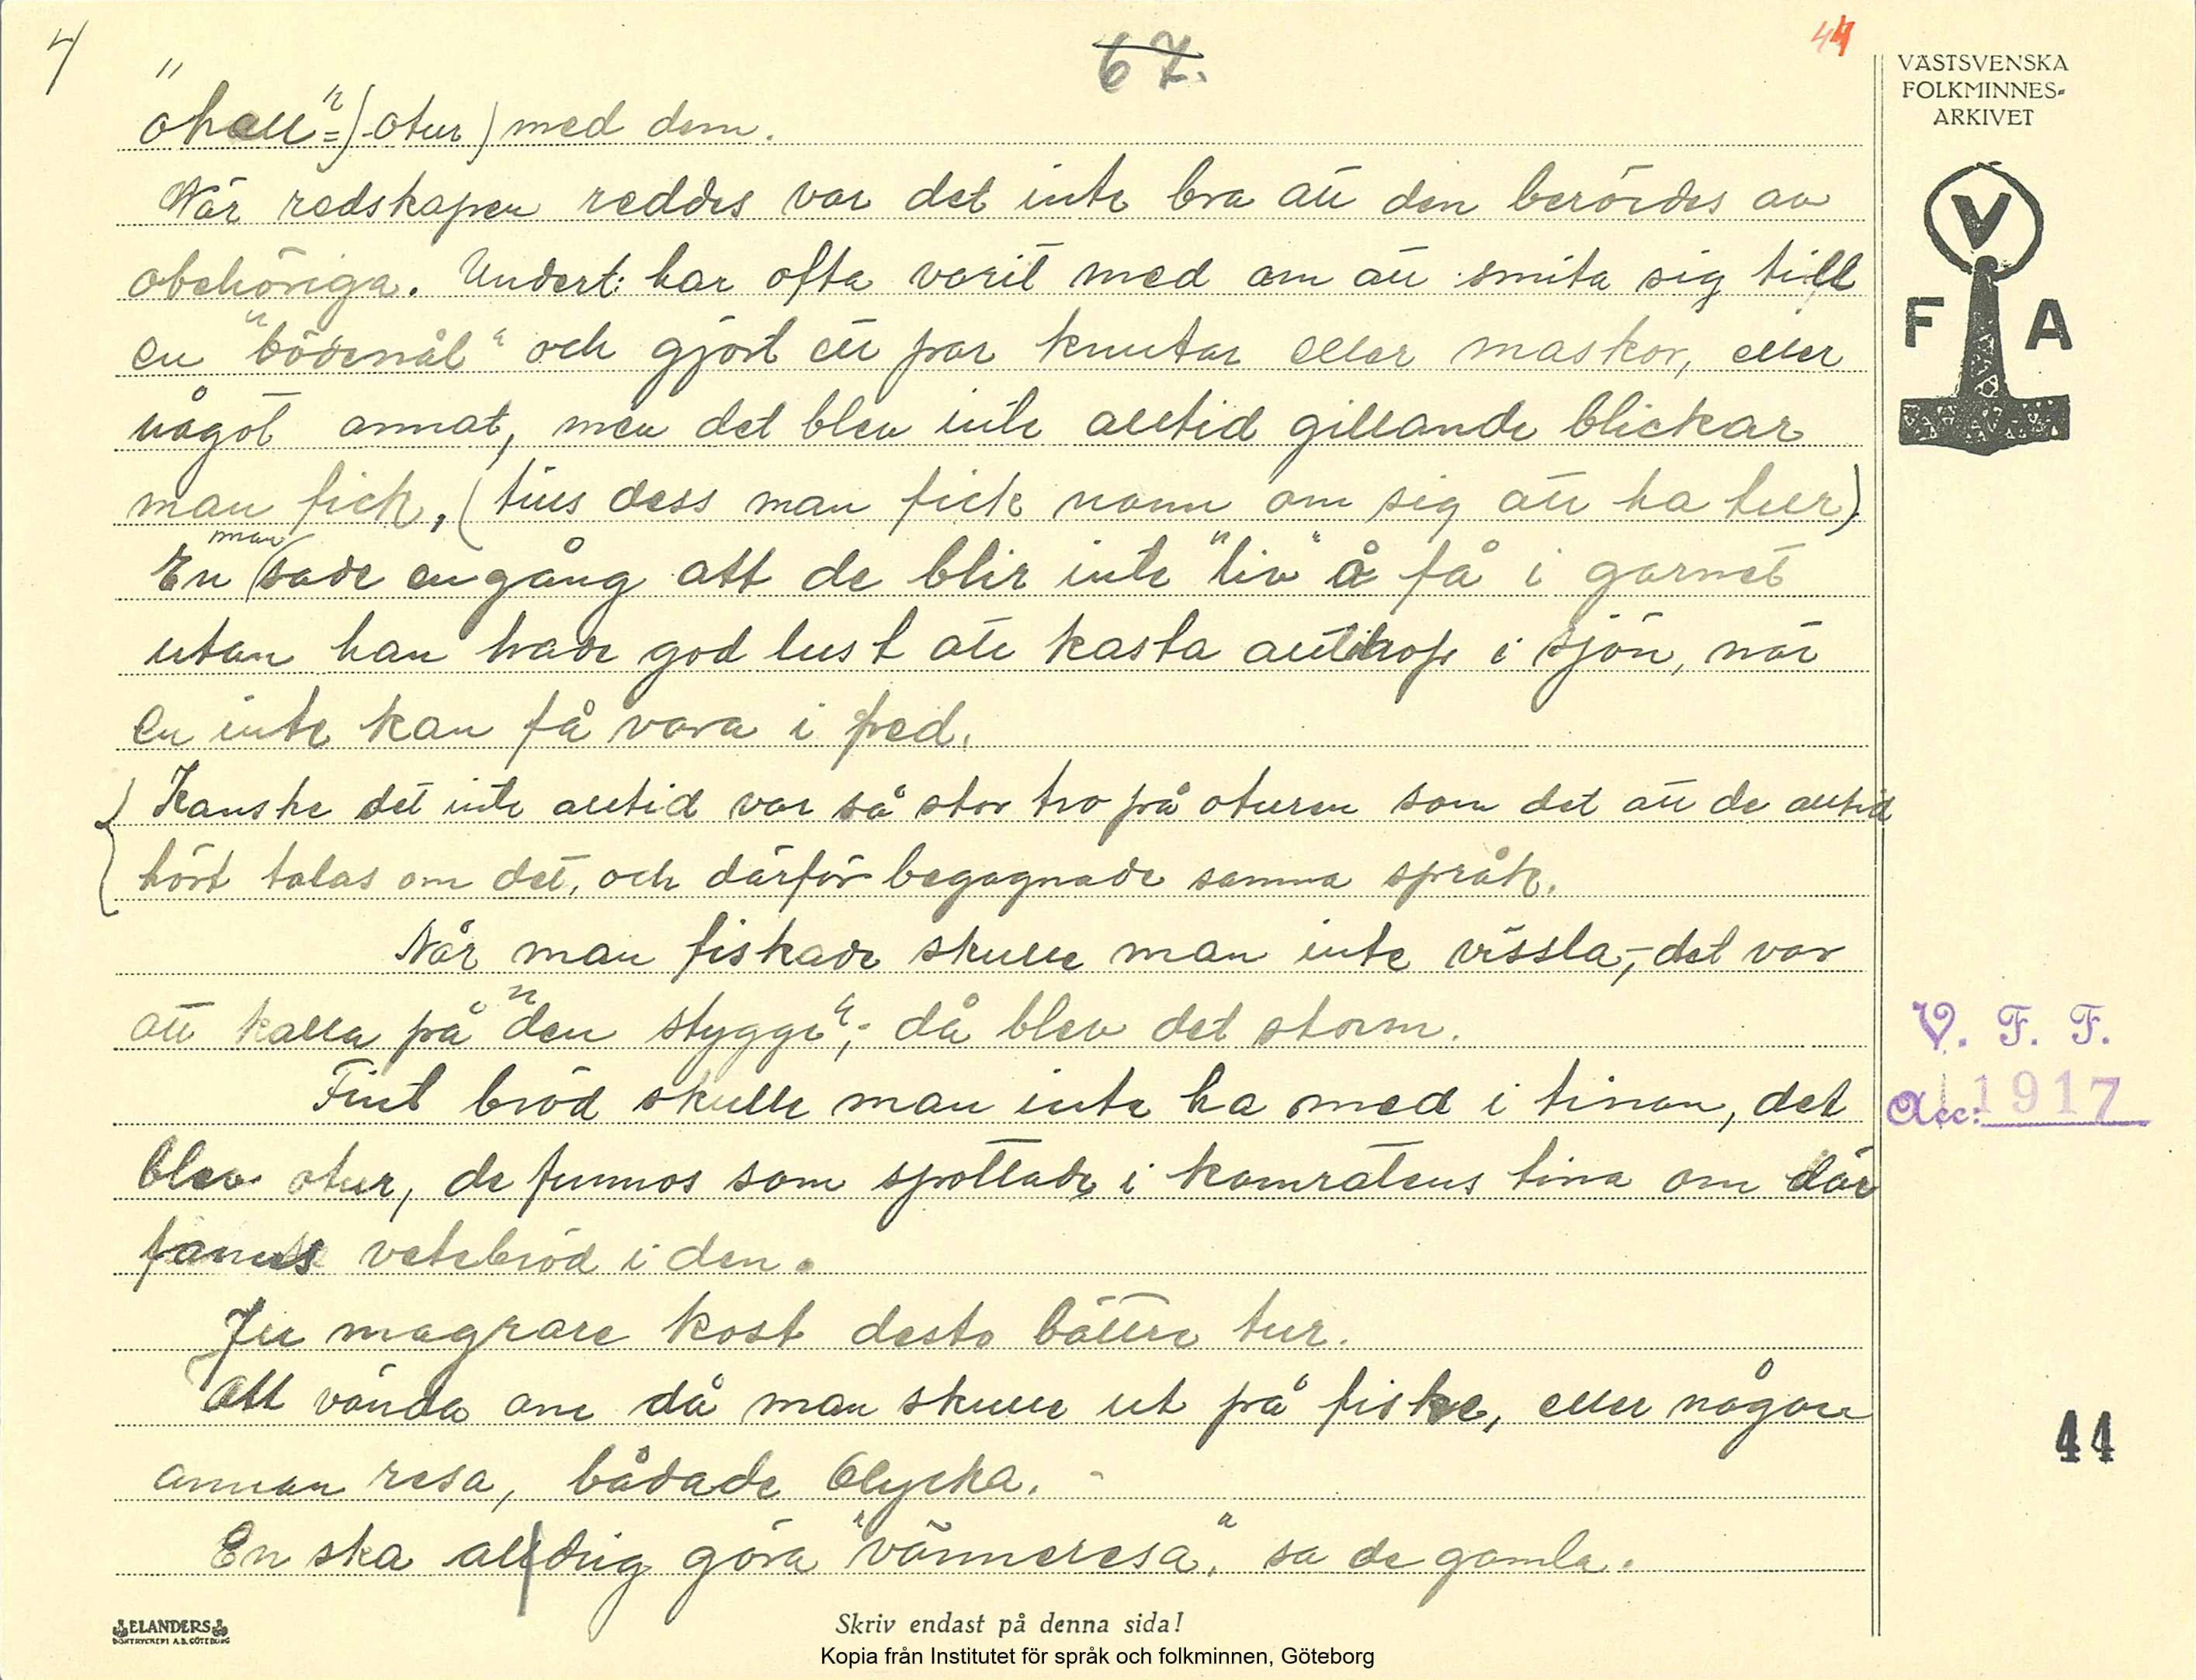 4
67.
44
VÄSTSVENSKA
FOLKMINNES-
ARKIVET
V
F A
"ohell" = (otur) med dem.
När redskapen reddes var det inte bra att den berördes av
obehöriga. Undert: har ofta varit med om att smita sig till
en "bödemål" och gjort ett par knutar eller maskor, eller
något annat, men det blev inte alltid gillande blickar
man fick, (tills dess man fick namn om sig att ha tur)
man
En sade en gång att de blir inte "liv" å få i garnet
utan han hade god lust att kasta alltihop i sjön, när
en inte kan få vara i fred.
Kanske det inte alltid var så stor tro på oturen som det att de alltid
hört talas om det, och därför begagnade samma språk.
När man fiskade skulle man inte vissla,- det var
att kalla på "den stygge"; då blev det storm.
Fint bröd skulle man inte ha med i tinan, det
blev otur, de funnos som spottade i kamratens tina om där
fanns vetebröd i den.
Ju magrare kost desto bättre tur.
Att vända om då man skulle ut på fiske, eller någon
annan resa, bådade olycka. -
En ska alldrig göra "vänneresa", sa de gamla.
V. F. F.
Acc: 1917
44
ELANDERS
BOKTRYCKERI A.B. GÖTEBORG
Skriv endast på denna sida!
Kopia från Institutet för språk och folkminnen, Göteborg